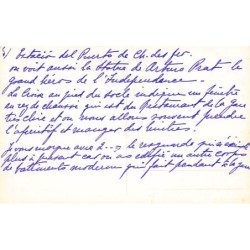 5/ Estación del Puerto de Ch. des fer.
on voit aussi la Statue de Arturo Prat le
grand héros de l'Independance.
La Croix au pied du socle indique une fenêtre
en rez de chaussée qui est du Restaurant de la Gare
très chic et où nous allons souvent prendre
l'apéritif et manger des huîtres.
Je vous marque avec 2 → le
plus à présent car on a edifié un autre corps
de batiments moderne qui fait pendant à la gare